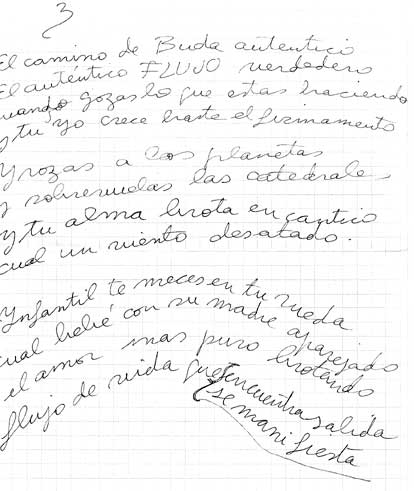 3
El camino de Buda autentico
El auténtico FLUJO verdadero
cuando gozas lo que estas haciendo
y tu yo crece hasta el firmamento
Y rozas a los planetas
y sobrevuelas las catedrales
y tu alma brota en cantico
cual un viento desatado.
Ynfantil te meces en tu rueda
cual bebé con su madre aparejado
el amor mas puro brotando
flujo de vida que encuentra salida
se manifiesta